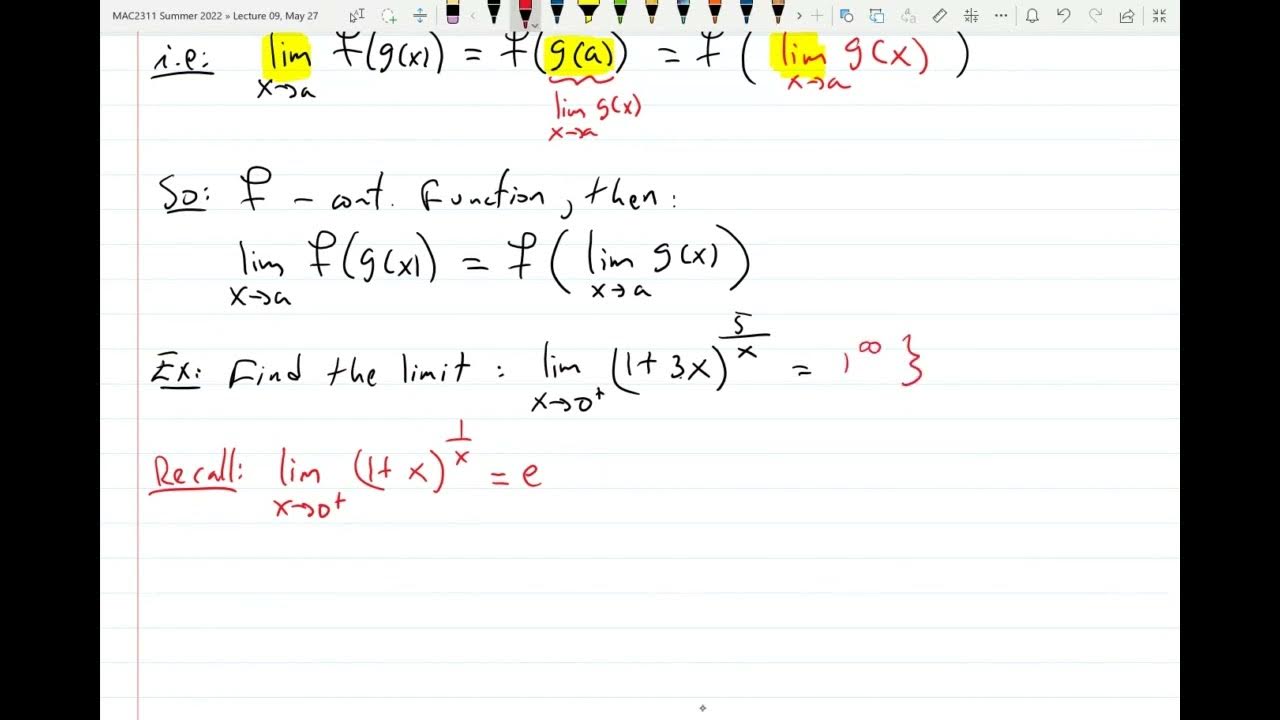 MAC2311 Summer 2022 » Lecture 09, May 27
i.e: lim x→a f(g(x)) = f(g(a)) = f( lim x→a g(x) )
lim x→a g(x)
So: f - cont. function, then:
lim x→a f(g(x)) = f( lim x→a g(x) )
Ex: Find the limit: lim x→0⁺ (1+3x)^(5/x) = 1^∞ }
Recall: lim x→0⁺ (1+x)^(1/x) = e